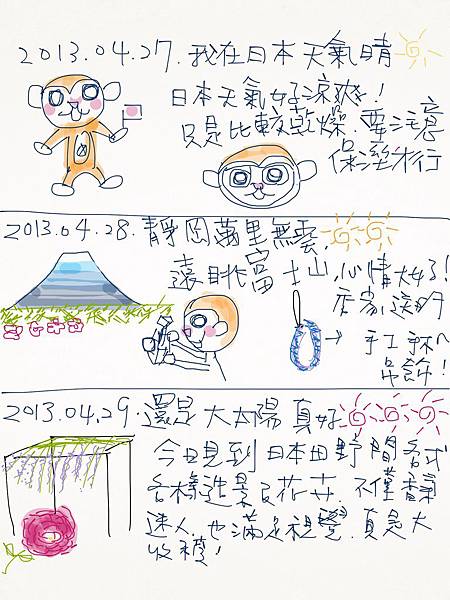 2013.04.27.我在日本天氣晴
日本天氣好涼爽!
只是比較乾燥.要注意
保溼才行
2013.04.28.靜岡萬里無雲,
遠眺富士山,心情大好!
店家送的
手工
吊飾!
2013.04.29.還是大太陽真好
今日見到日本田野間各式
各樣造景及花卉.不僅香氣
迷人.也滿足視覺.真是大
收穫!